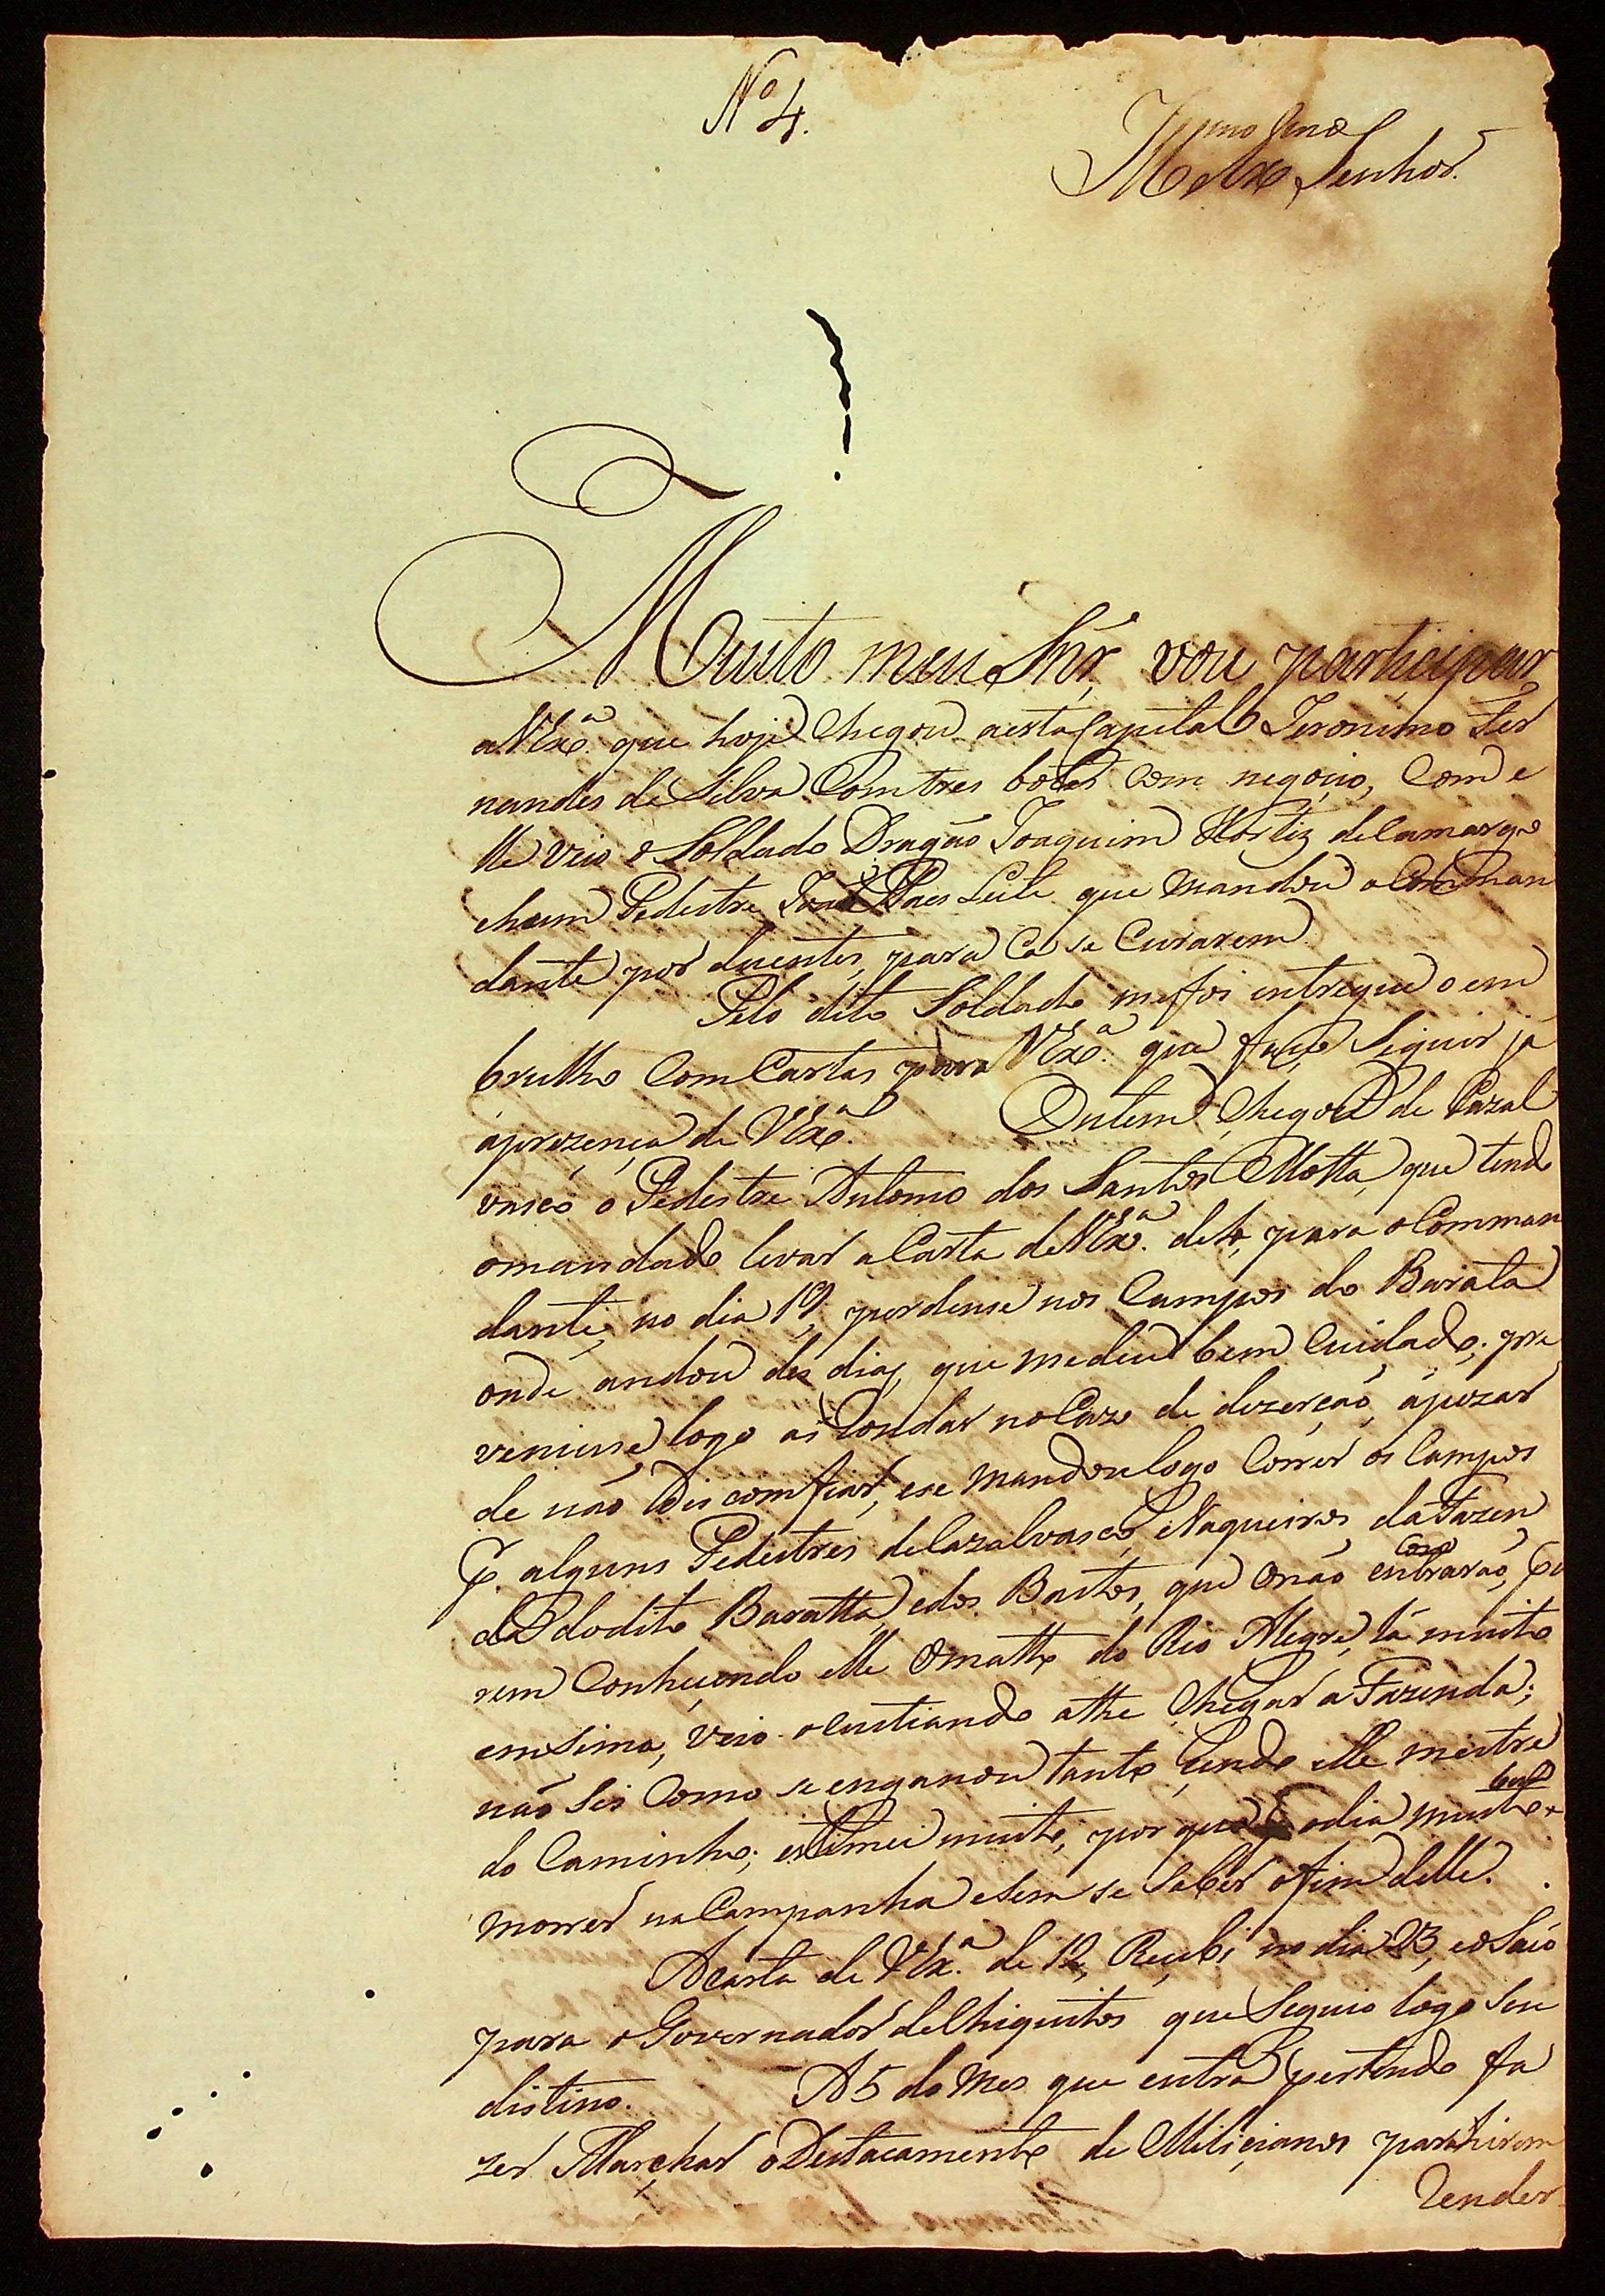 Nº 4.
Illmo e Exmo Senhor.
Muito meu Snr̃, vou participar
a VExª. que hoje chegou a esta Capital Jeronimo Fer
nandes da Silva Com tres botes com negoçio, Com e
lle veio o Soldado Dragão Joaquim Hortiz de Camargo
e hum Pedestre João Paes Leite que mandou o Comman
dante por duentes, para Ca se Curarem.
Pelo dito Soldado me foi entregue o em
brulho Com Cartas para VExª. que faço Siguir já
á prezença de VExª. Ontem chegou de Cazal
vasco o Pedestre Antonio dos Santos Motta, que tendo
o mandado levar a Carta de VExª. de 4, para o Comman
dante, no dia 19, perdeuse nos Campos do Barata
onde andou des dias, que me deu bem Cuidado; pre
veniuse logo as Rondas no Cazo de dezerção, apezar
de não Discomfiar, e se mandou logo Correr os Campos
P. alguns Pedestres de Cazalvasco, e Vaqueiros da Fazen
da do dito Baratta, e dos Bastos, que o não encontrarão, Po
rem Conheçendo elle o matto do Rio Alegre, lá muito
em Sima, veio o Custiando athe Chegar a Fazenda;
não Sei Como se enganou tanto Sendo elle mestre
do Caminho; estimei muito, por que podia muito bem
morrer na Campanha e Sem se Saber o fim delle.
A Carta de VExª. de 12, Reçebi no dia 23, e o Saco
para o Governador de Chiquitos que Seguio logo Seu
distino. A 5 do Mes que entra pertendo fa
zer Marchar o Destacamento de Miliçianos para hirem
Render